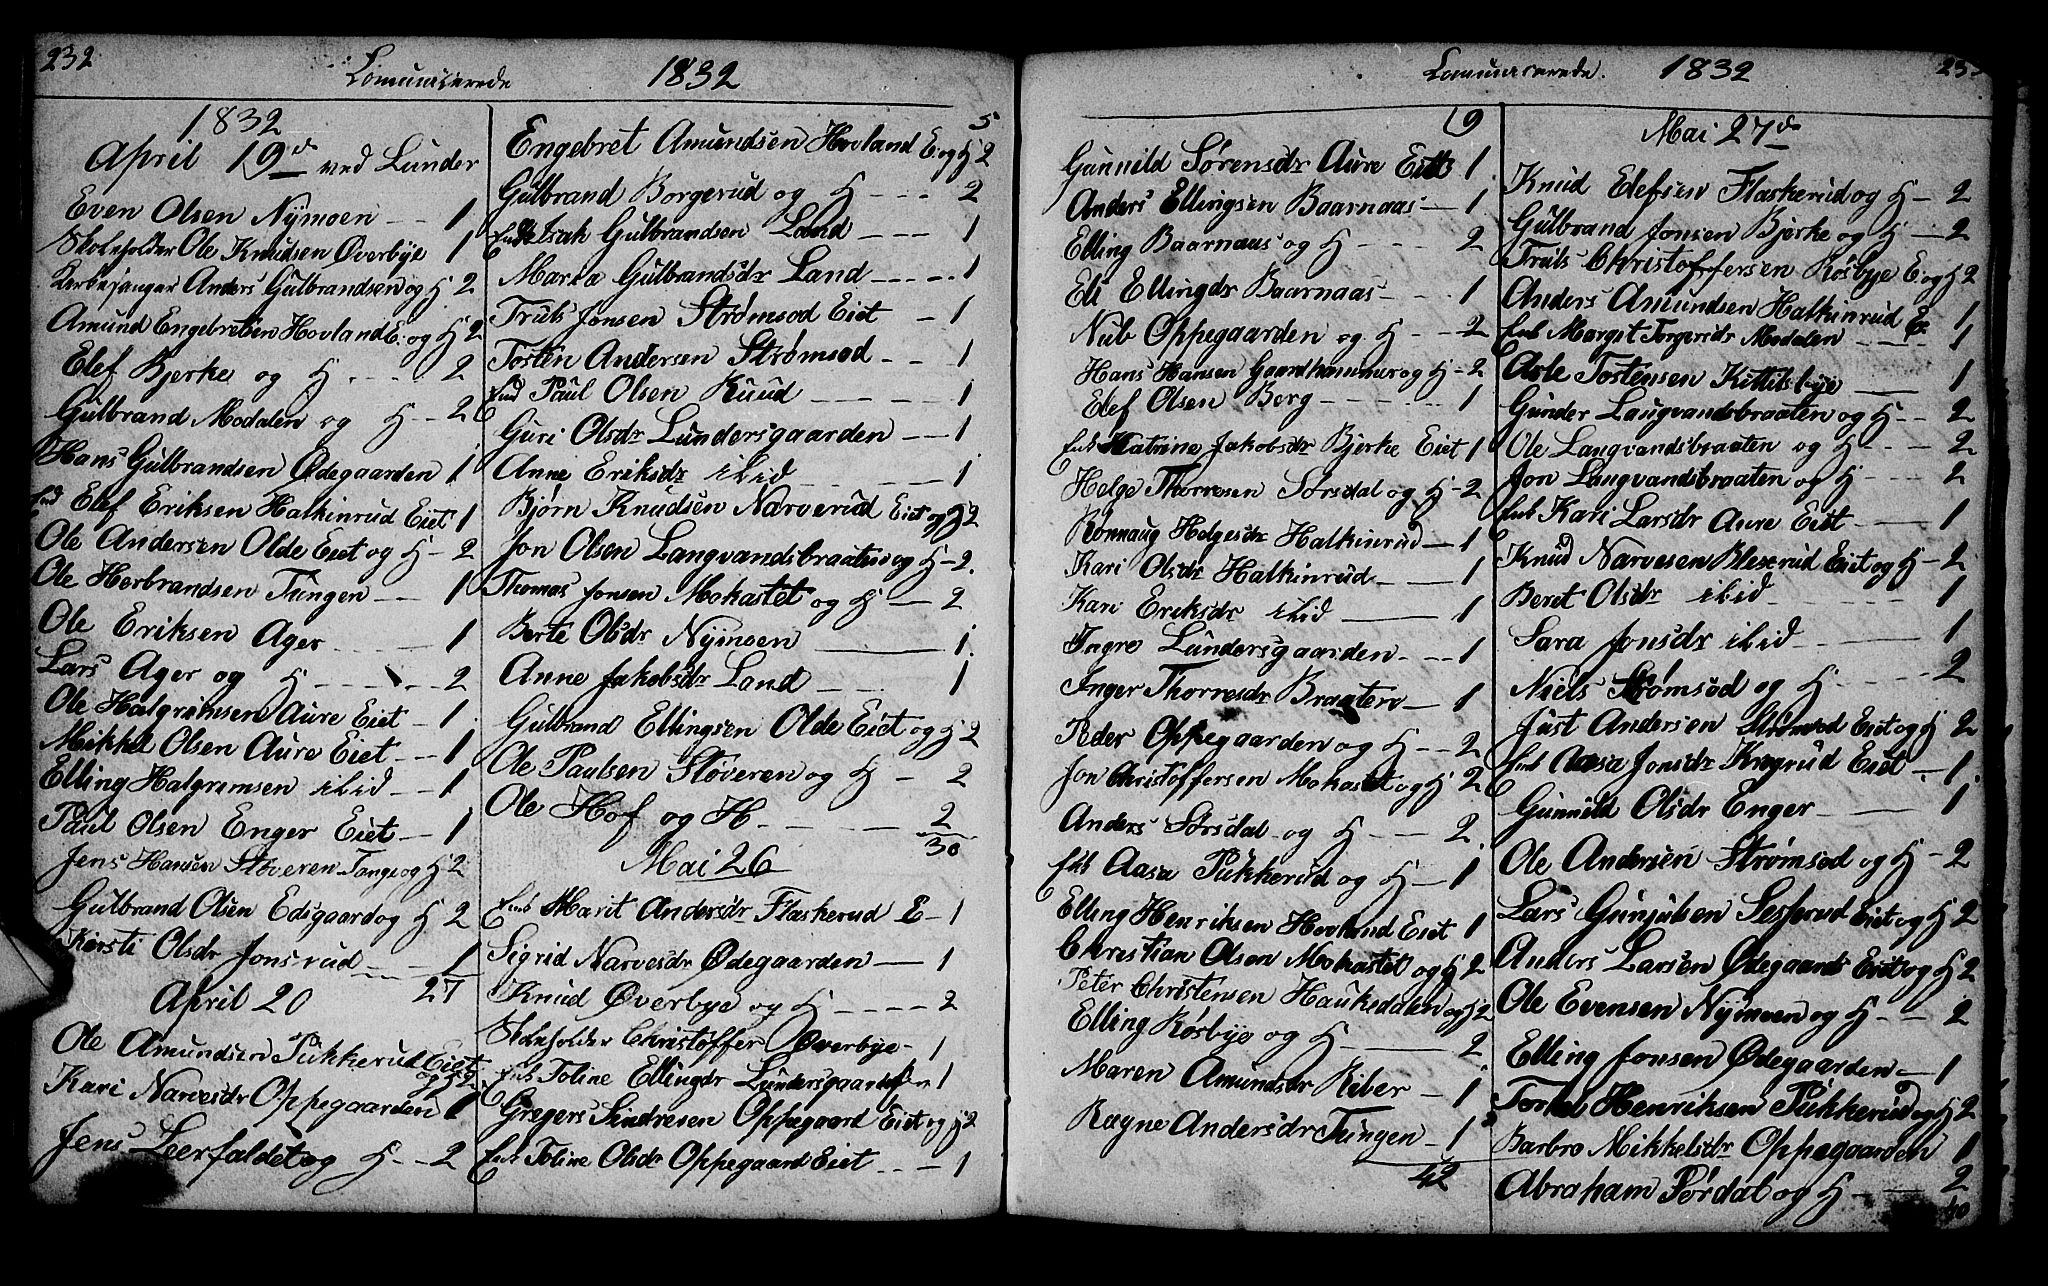 232
Comunicerede 1832
1832
April 19de ved Lunder
Even Olsen Nÿmoen 1
Skoleholder Ole Knudsen Øverbÿe 1
Kirkesanger Anders Gulbrandsen og H 2
Amund Engebretsen Hovland E. og H 2
Elef Bjerke og H 2
Gulbrand Modalen og H 2
Hans Gulbrandsen Ødegaarden 1
Elef Eriksen Halkinrud Eiet 1
Ole Andersen Olde Eiet og H 2
Ole Herbrandsen Tungen 1
Ole Eriksen Ager 1
Lars Ager og H 2
Ole Halgrimsen Aure Eiet 1
Mikkel Olsen Aure Eiet 1
Elling Halgrimsen ibid 1
Paul Olsen Enger Eiet 1
Jens Hansen Støveren Tange og H 2
Gulbrand Olsen Edsgaard og H 2
Kirsti Olsdr Jonsrud 1
27
April 20
Ole Amundsen Pukkerud Eiet og H 2
Kari Narvesdr Oppegaarden 1
Jens Leerfaldet og H 2
5
Engebret Amundsen Hovland E. og H 2
Gulbrand Borgerud og H 2
Isak Gulbrandsen Land 1
Maria Gulbrandsdr Land 1
Truls Jonsen Strømsod Eiet 1
Tosten Andersen Strømsod 1
Paul Olsen Ruud 1
Guri Olsdr Lundersgaarden 1
Anne Eriksdr ibid 1
Bjørn Knudsen Narverud Eiet og H 2
Jon Olsen Langvandsbraaten og H 2
Thomas Jonsen Mokastet og H 2
Berte Olsdr Nÿmoen 1
Anne Jakobsdr Land 1
Gulbrand Ellingsen Olde Eiet og H 2
Ole Paulsen Støveren og H 2
Ole Hof og H 2
30
Mai 26
Marit Andersdr Flaskerud E 1
Sigrid Narvesdr Ødegaarden 1
Knud Øverbÿe og H 2
Skoleholder Christoffer Øverbÿe 1
Toline Ellingdr Lundersgaarden 1
Gregers Sindresen Oppegaard Eiet og H 2
Toline Olsdr Oppegaard Eiet 1
Comunicerede. 1832
19
Gunnild Sørensdr Aure Eiet 1
Anders Ellingsen Baarnaas 1
Elling Baarnaas og H 2
Eli Ellingdr Baarnaas 1
Nub Oppegaarden og H 2
Hans Hansen Gaardhammer og H 2
Elef Olsen Berg 1
Katrine Jakobsdr Bjerke Eiet 1
Helge Thorresen Sørsdal og H 2
Rønnaug Helgesdr Halkinrud 1
Kari Olsdr Halkinrud 1
Kari Eriksdr ibid 1
Ingre Lundersgaarden 1
Inger Thorresdr Braaten 1
Peder Oppegaarden og H 2
Jon Christoffersen Mokastet og H 2
Anders Sørsdal og H 2
Aasa Pukkerud og H 1
Elling Henriksen Hovland Eiet 1
Christian Olsen Mokastet og H 2
Peter Christensen Haukedalen og H 2
Elling Røsbÿe og H 2
Maren Amundsdr Riber 1
Ragne Andersdr Tungen 1
42
Mai 27de
Knud Elefsen Flaskerud og H 2
Gulbrand Jonsen Bjerke og H 2
Truls Christoffersen Røsbÿe E. og H 2
Anders Amundsen Halkinrud E. 1
Margit Torgersdr Modalen 1
Asle Tostensen Kittilsbÿe 1
Gunder Langvandsbraaten og H 2
Ole Langvandsbraaten og H 2
Jon Langvandsbraaten og H 2
Kari Larsdr Aure Eiet 1
Knud Narvesen Blexerud Eiet og H 2
Beret Olsdr ibid 1
Sara Jonsdr ibid 1
Niels Strømsod og H 2
Just Andersen Strømsod Eiet og H 2
Aasa Jonsdr Eiet 1
Gunnild Olsdr Enger 1
Ole Andersen Strømsod og H 2
Lars Gunjulsen Sesserud Eiet og H 2
Anders Larsen Ødegaard Eiet og H 2
Ole Evensen Nÿmoen og H 2
Elling Jonsen Ødegaarden 1
Torkel Henriksen Pukkerud og H 2
Barbro Mikkelsdr Oppegaarden 1
Abraham Sørdal og H 2
40